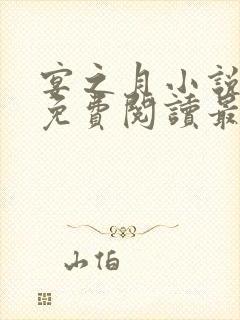 宴之月小說
免費閱讀最
山伯